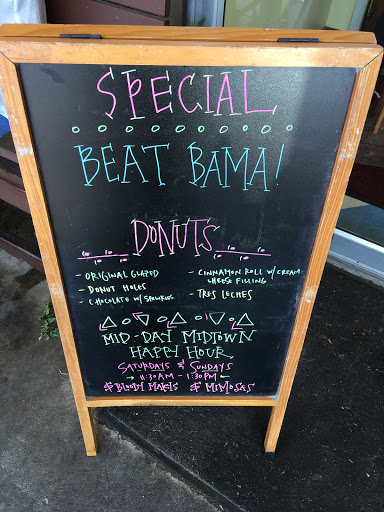 SPECIAL
BEAT BAMA!
DONUTS
- ORIGINAL GLAZED
- DONUT HOLES
- CHOCOLATE W/ SPRINKLES
- CINNAMON ROLL W/ CREAM CHEESE FILLING
- TRES LECHES
MID-DAY MIDTOWN
HAPPY HOUR
SATURDAYS & SUNDAYS
11:30AM - 1:30PM
$ BLOODY MARYS $ MIMOSAS